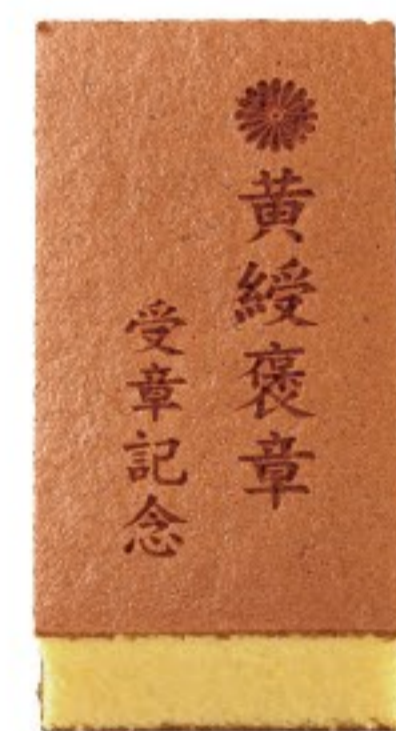 黄綬褒章
受章記念